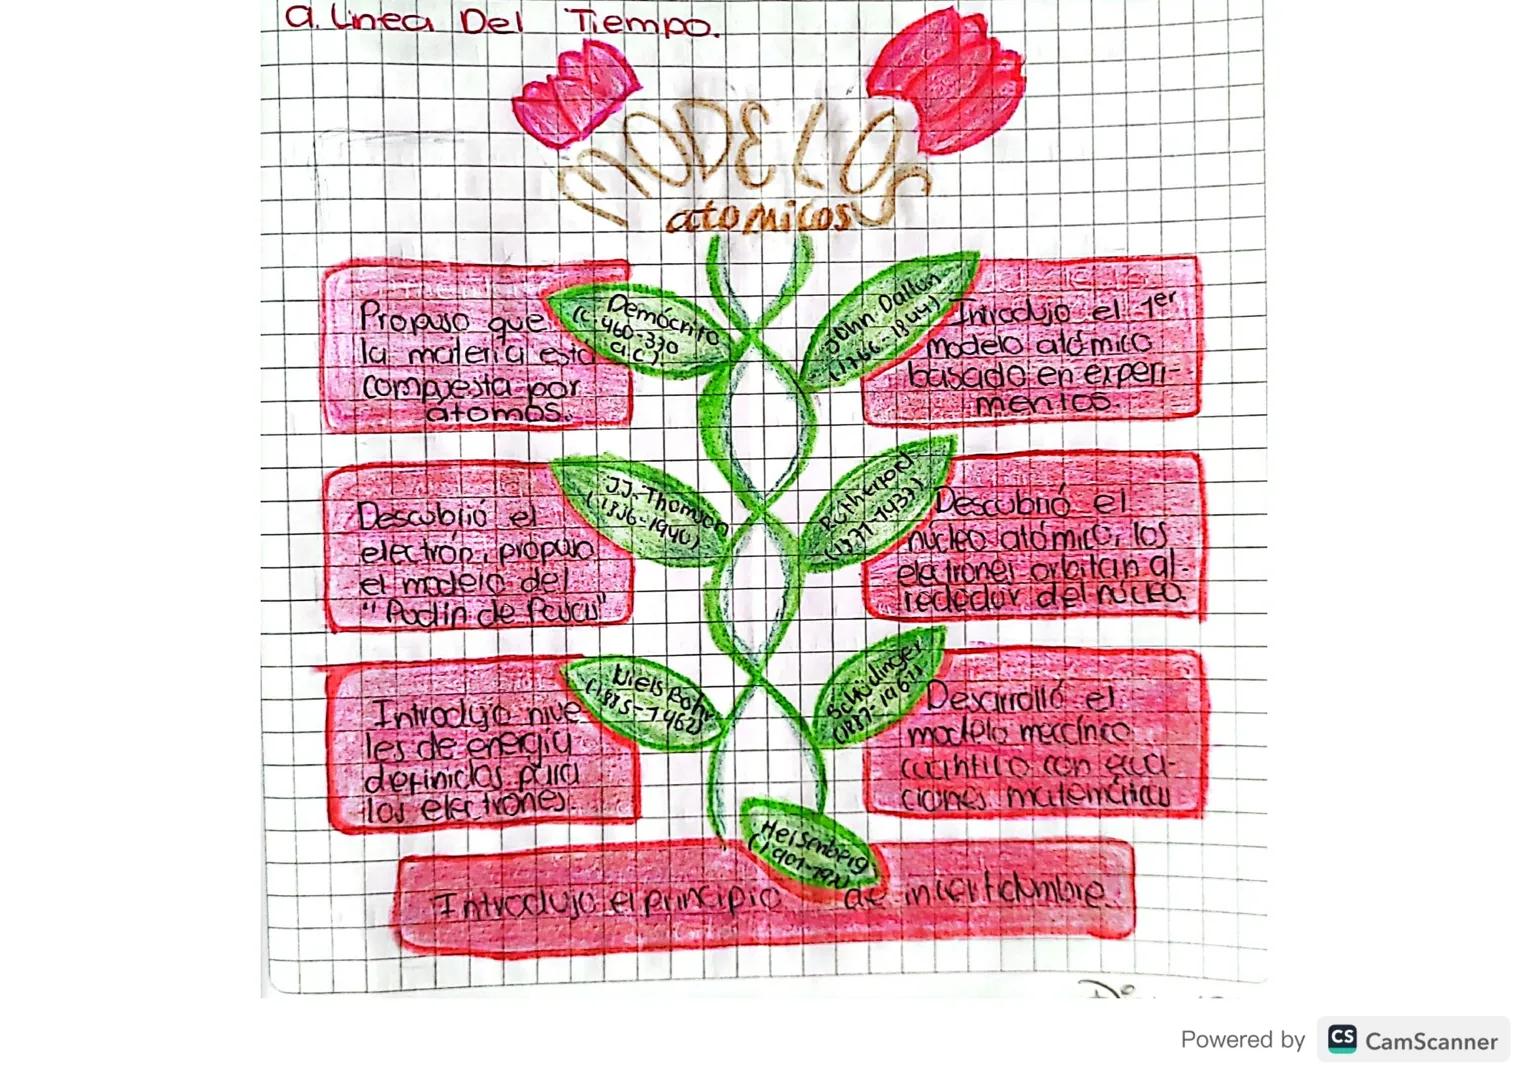 a. Linea Del Tiempo.
MODELOS
atomicos
Demócrito
(c. 460-370
a.c).
Propuso que
la materia esta
compuesta por
atomos.
John Dalton
(1766-1844)
Introdujo el 1er
modelo atómico
basado en experi-
mentos.
J.J. Thomson
(1856-1940)
Descubrió el
electrón, propuso
el modelo del
"Pudin de Pasas"
Rutherford
(1871-1937)
Descubrió el
núcleo atómico, los
electrones orbitan al-
rededor del núcleo.
Niels Bohr
(1885-1962)
Introdujo nive-
les de energía
definidos para
los electrones.
Schrödinger
(1887-1961)
Desarrolló el
modelo mecánico
cuántico con ecua-
ciones matemáticas
Heisenberg
(1901-
Introdujo el principio de incertidumbre.
Powered by CS CamScanner